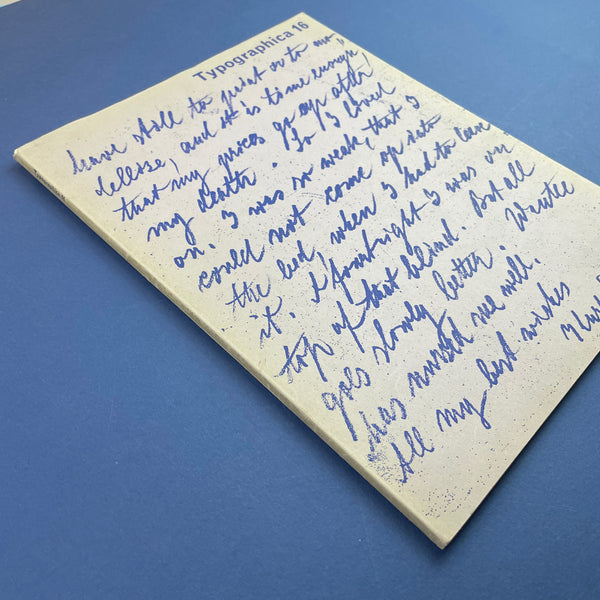 Typographica 16
have still to print or to mo
dellise, and it is to me enough,
that my prices go up after
my death. So I lived
on. I was so weak, that I
could not come up into
the bed, when I had to leave
it. A fourtnight I was on
top of that blind. But all
goes slowly better. Wantee
has nursed me well.
All my best wishes